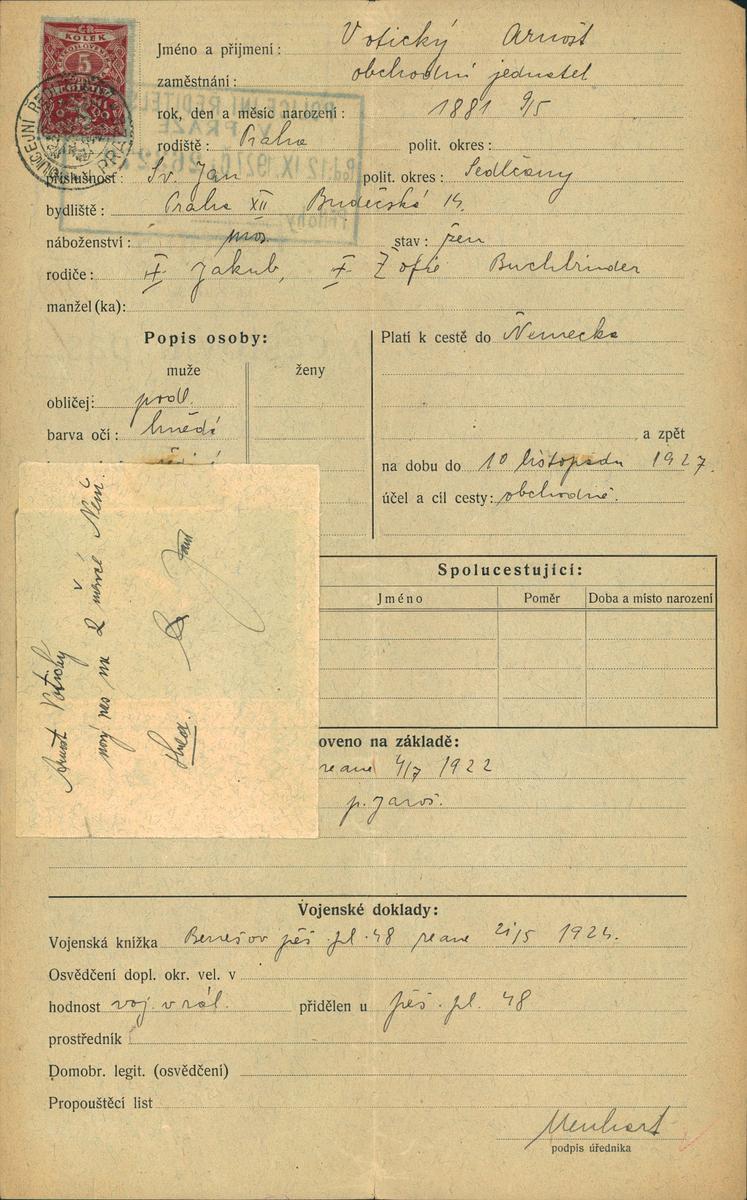 ČR
KOLEK
5
Jméno a přijmení: Votický Arnošt
zaměstnání: obchodní jednatel
rok, den a měsíc narození: 1881 9/5
rodiště: Praha polit. okres:
příslušnost: Sv. Jan polit. okres: Sedlčany
bydliště: Praha XII Budečská 14.
náboženství: stav: žen
rodiče: Jakub, Žofie Buchbinder
manžel (ka):
Popis osoby:
muže ženy
obličej: podl.
barva očí: hnědé
Platí k cestě do Německa
a zpět
na dobu do 10 listopadu 1927.
účel a cíl cesty: obchodně.
Arnošt Votický
nový pas na 2 měsíce Něm.
Spolucestující:
Jméno Poměr Doba a místo narození
oveno na základě:
4/7 1922
p. Jaroš.
Vojenské doklady:
Vojenská knížka Benešov pěš pl. 48 21/5 1924.
Osvědčení dopl. okr. vel. v
hodnost voj. v zál. přidělen u pěš. pl. 48
prostředník
Domobr. legit. (osvědčení)
Propouštěcí list
Menhart
podpis úředníka